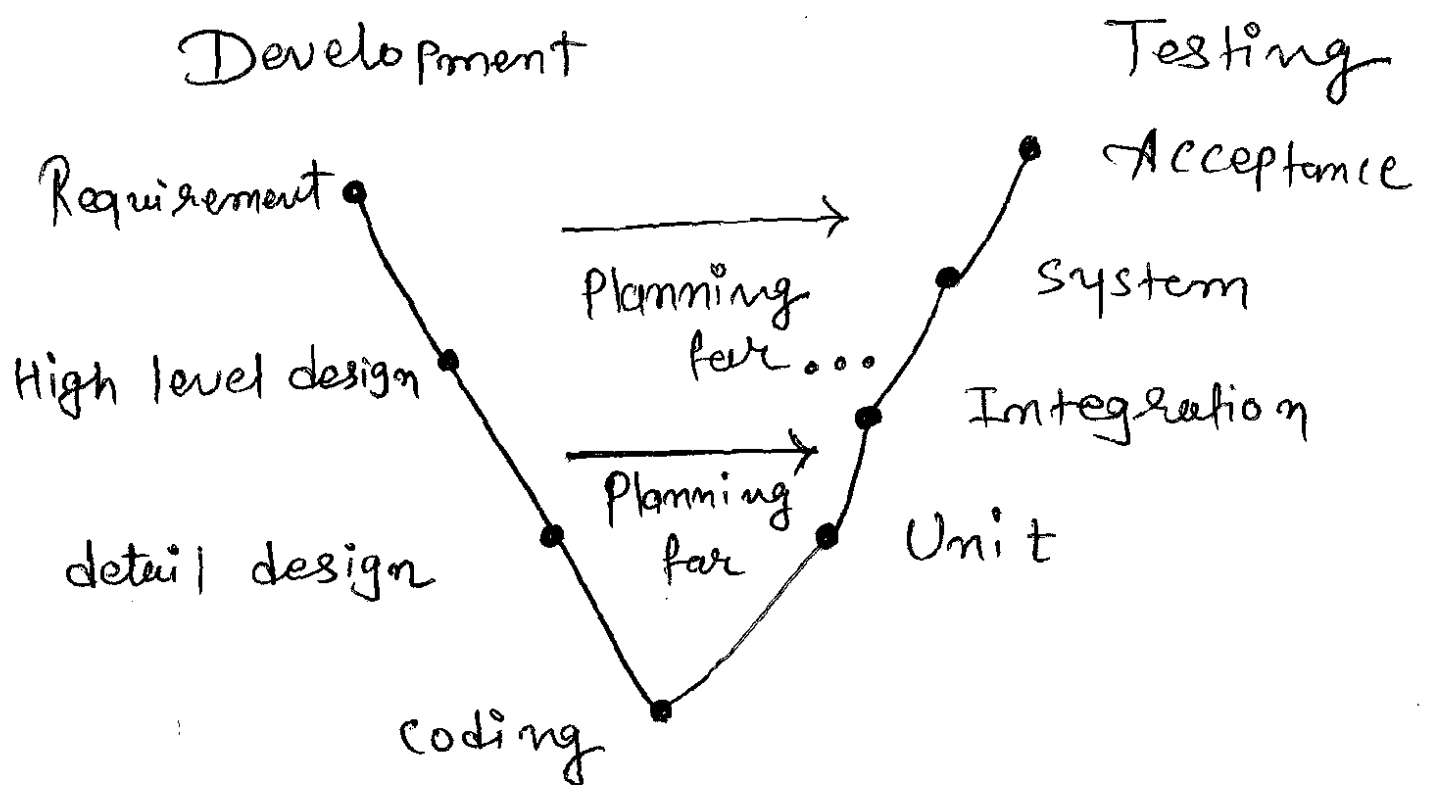 Development
Testing
Requirement
Acceptance
Planning
for...
System
High level design
Integration
Planning
for
Unit
detail design
Coding